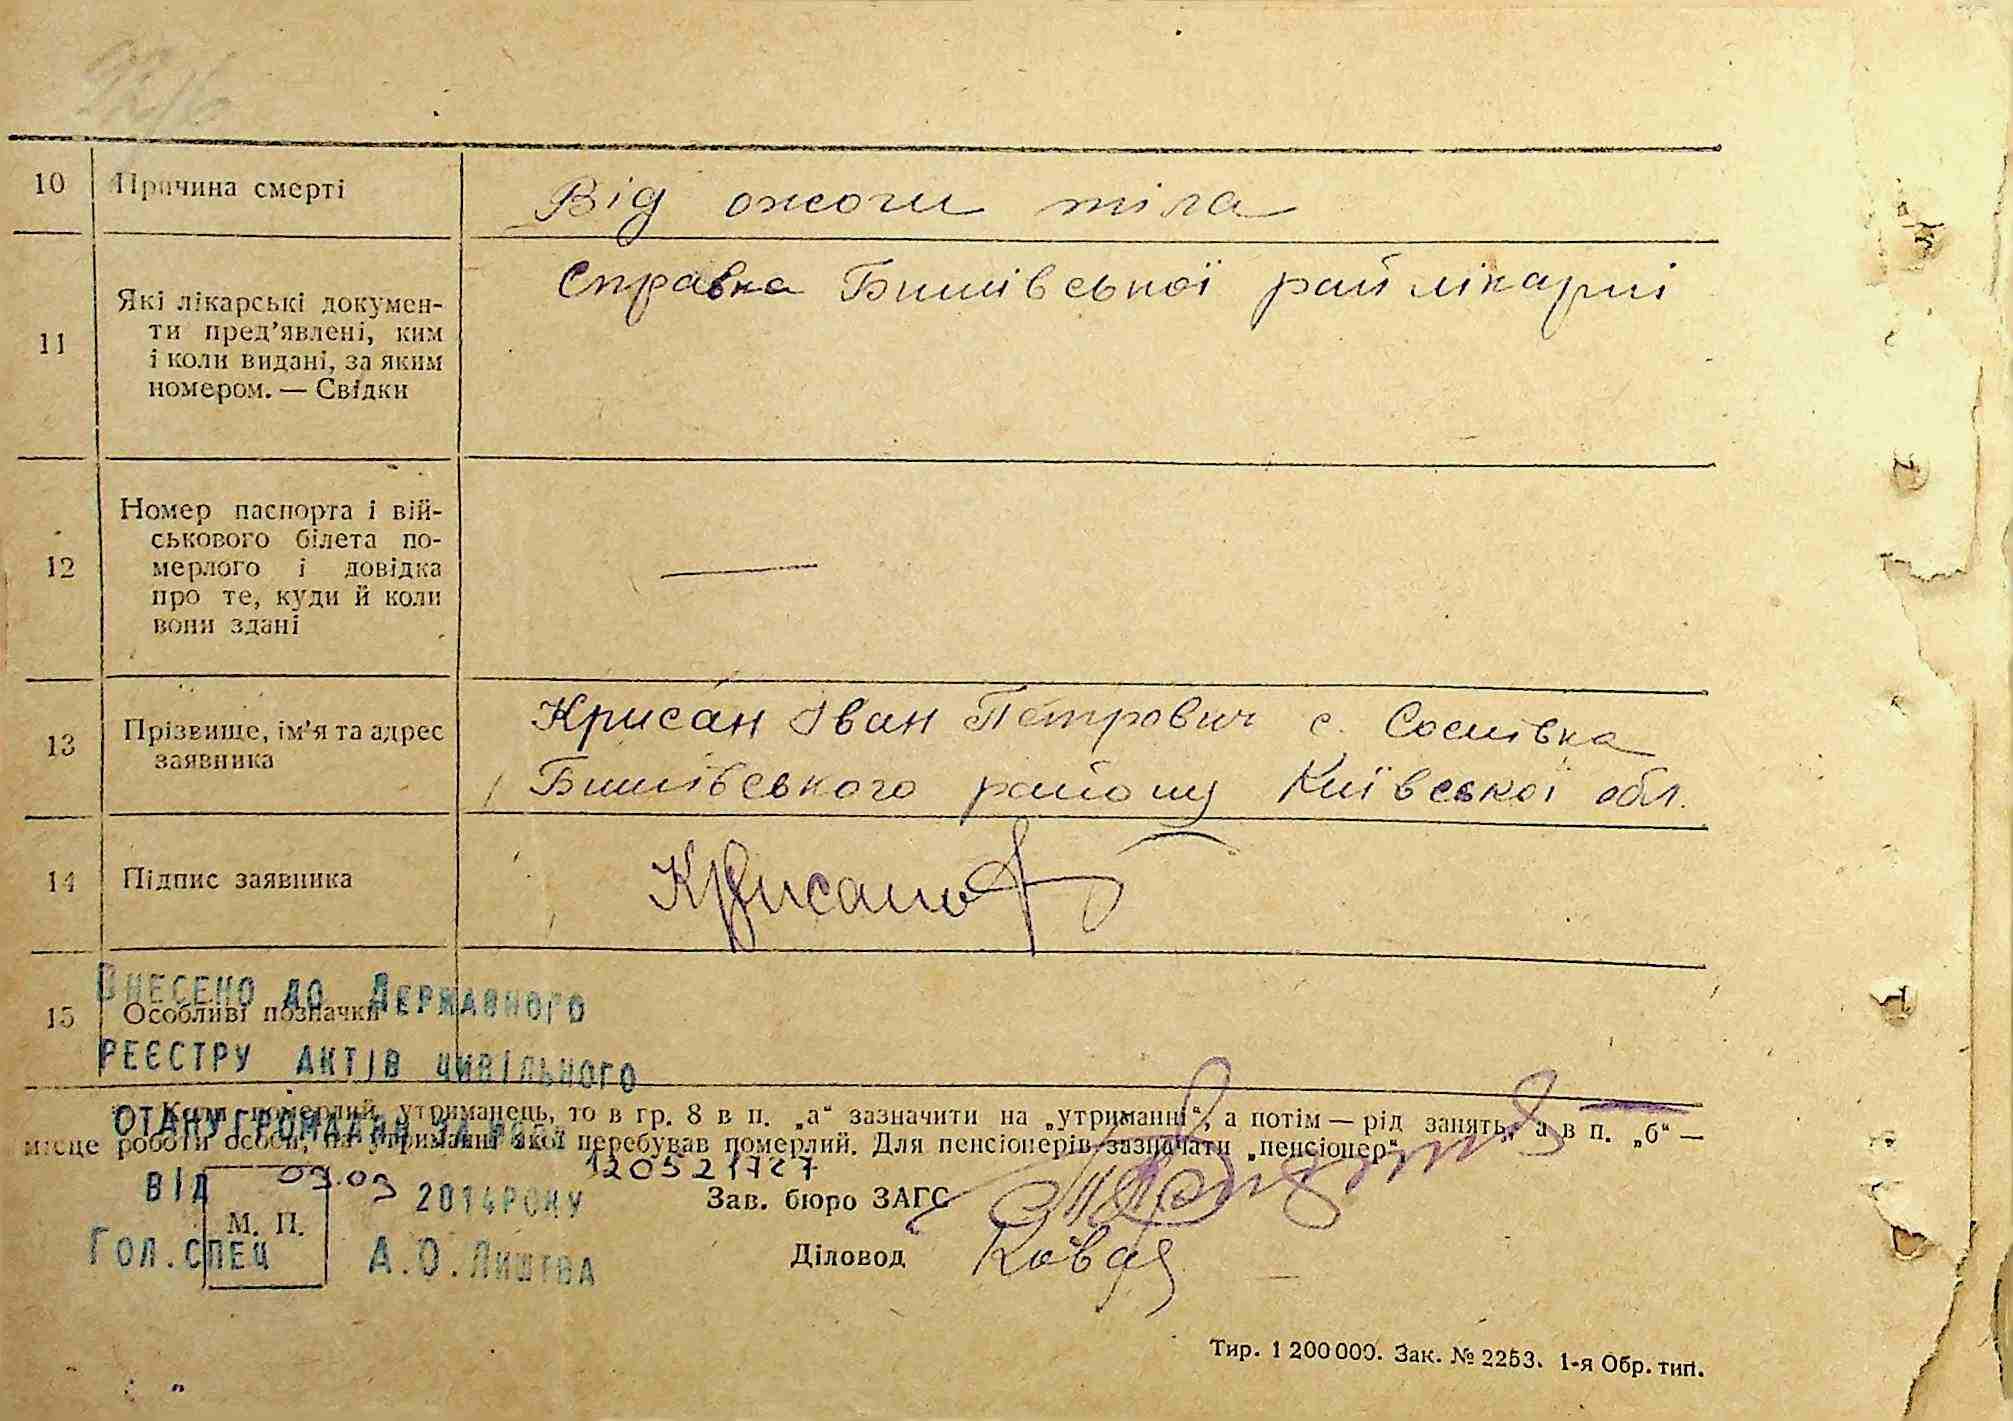 10 Причина смерті Від ожоги тіла
11 Які лікарські докумен-
ти пред’явлені, ким
і коли видані, за яким
номером. — Свідки
Справка Бишівської райлікарні
12 Номер паспорта і вій-
ськового білета по-
мерлого і довідка
про те, куди й коли
вони здані
—
13 Прізвище, ім’я та адрес
заявника
Крисан Іван Петрович с. Соснівка
Бишівського району Київської обл.
14 Підпис заявника
15 Особливі позначки
Внесено до Державного
реєстру актів цивільного
стану громадян за
від 09.09 2014 року
120521727
Гол. спец А. О. Лиштва
Коли померлий утриманець, то в гр. 8 в п. „а“ зазначити на „утриманні“, а потім — рід занять, а в п. „б“ —
місце роботи особи, на утриманні якої перебував померлий. Для пенсіонерів зазначати „пенсіонер“.
М. П.
Зав. бюро ЗАГС
Діловод
Тир. 1 200 000. Зак. № 2253. 1-я Обр. тип.